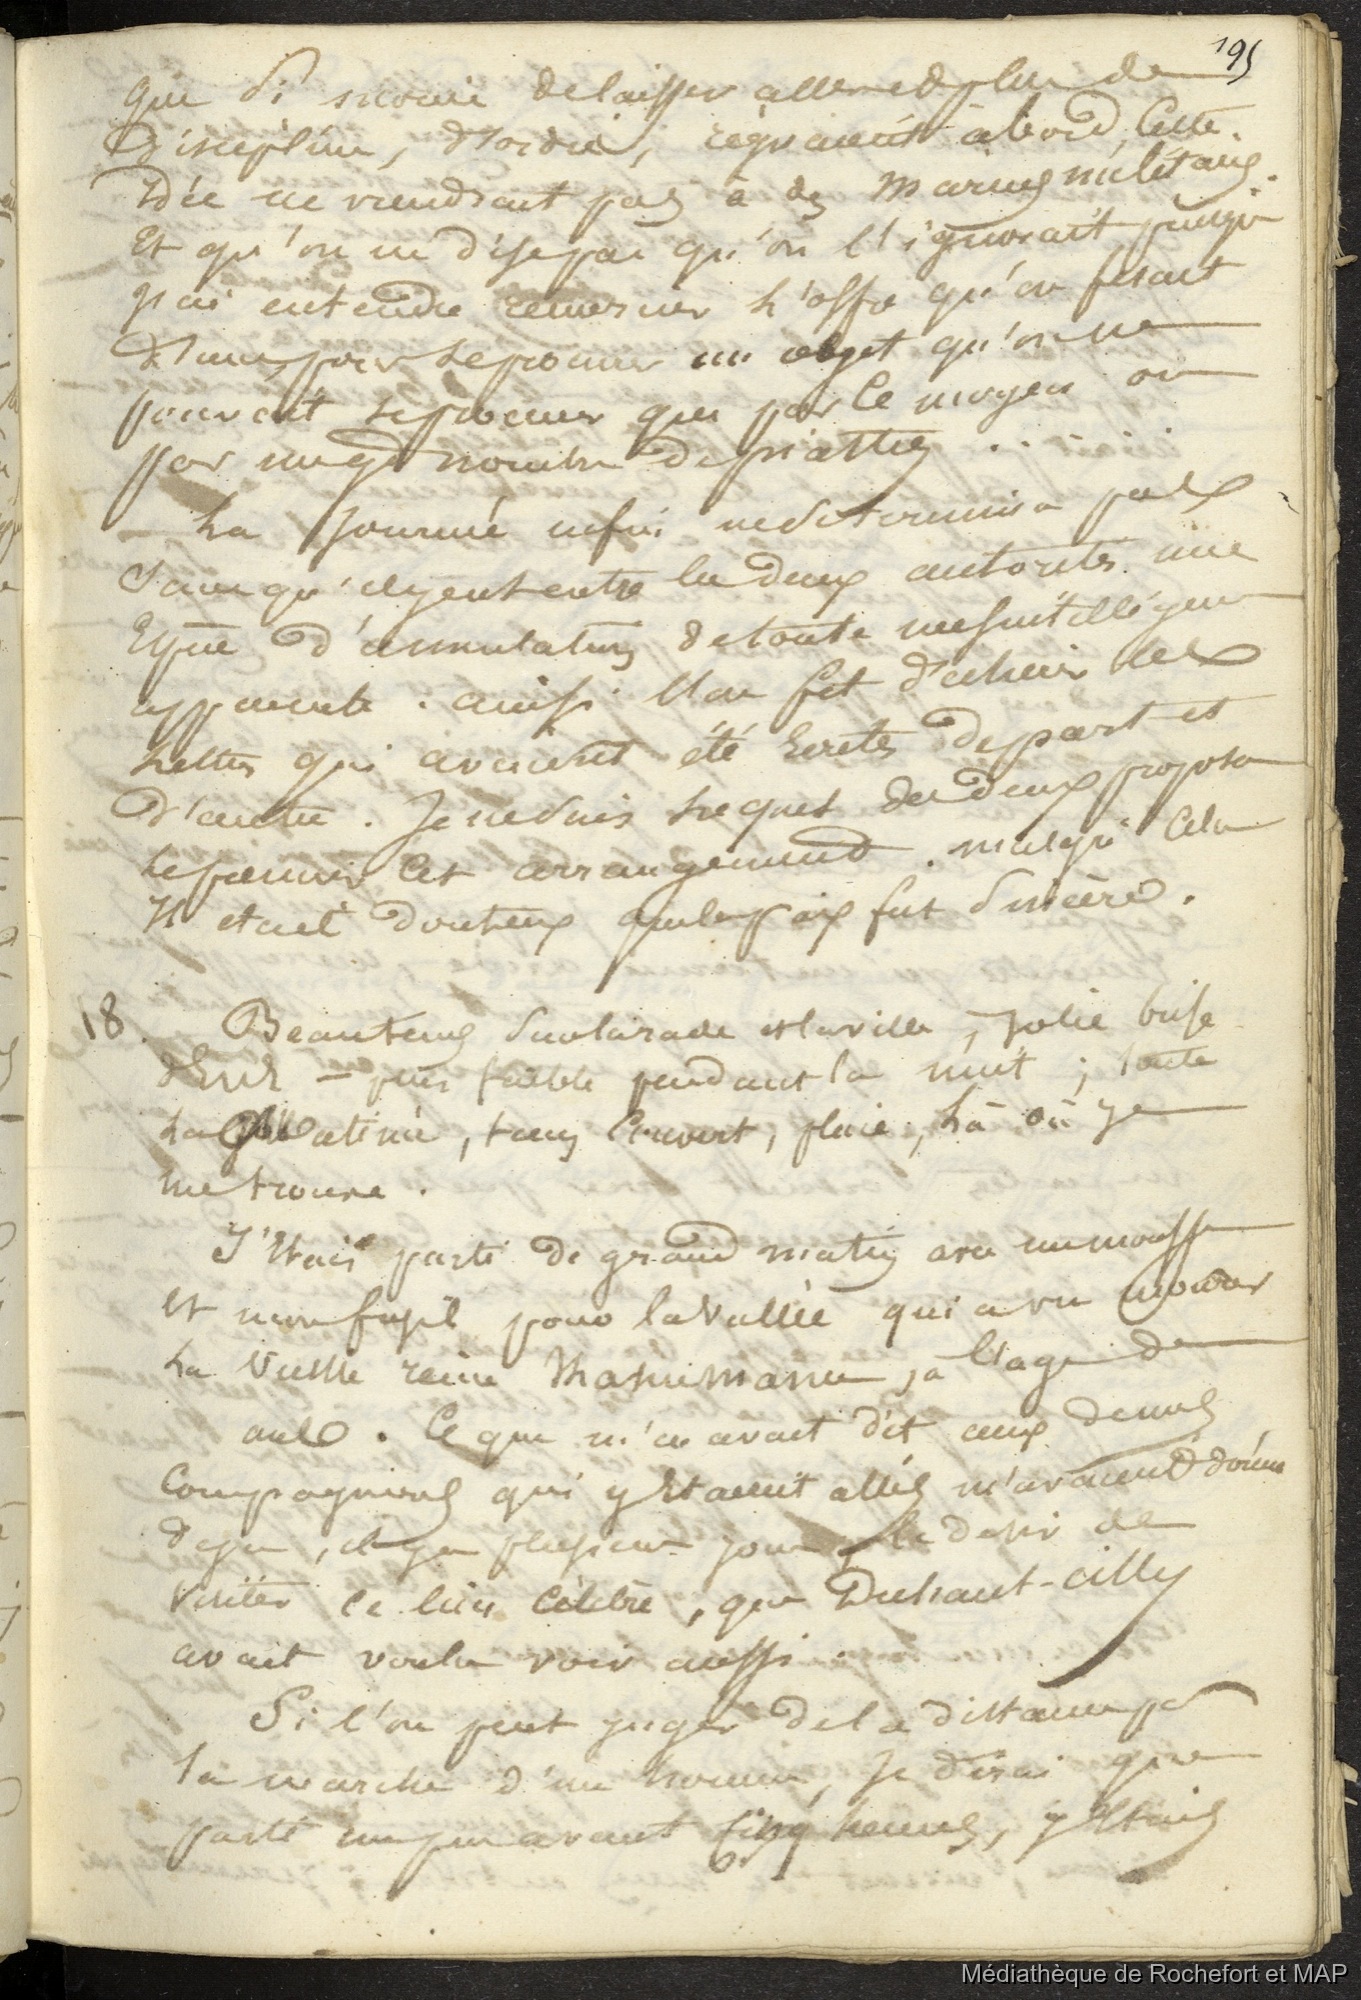 195
que si moins de laisser aller et plus de
discipline, d'ordre, régnaient à bord, cette
idée ne viendrait pas à des marins militaires.
Et qu'on ne dise pas qu'on l'ignorait puisque
j'ai entendu l'offre qu'on fesait
d'une, pour se procurer un objet qu'on ne
pouvait se procurer que par ce moyen ou
par un gd nombre de piastres . . .
La journée ne se termina pas
sans qu'il y eut entre les deux autorités une
de toute mesintelligence
apparente. ainsi l'on fit déchirer les
lettres qui avaient été ecrites de part et
d'autre. Je ne sais lequel des deux proposa
le premier cet arrangement. malgré cela
Il etait douteux que la paix fut sincère.
18. Beau tems sur la rade et la ville, jolie brise
d'Est - puis faible pendant la nuit ; toute
La Matinée, tems couvert, pluie, là où je
me trouve.
J'étais parti de grand matin avec un mousse
et mon fusil pour la Vallée qui a vu mourir
La Vieille reine à l'age de
ans. Ce que m'en avait dit ceux de mes
Compagnons qui y etaient allés m'avaient donné
deja, il y a plusieurs jours, le desir de
visiter ce lieu célèbre, que Duhaut-cilly
avait voulu voir aussi.
Si l'on peut juger de la distance par
la marche d'un homme, je dirai que
parti un peu avant cinq heures, j'etais
Médiathèque de Rochefort et MAP